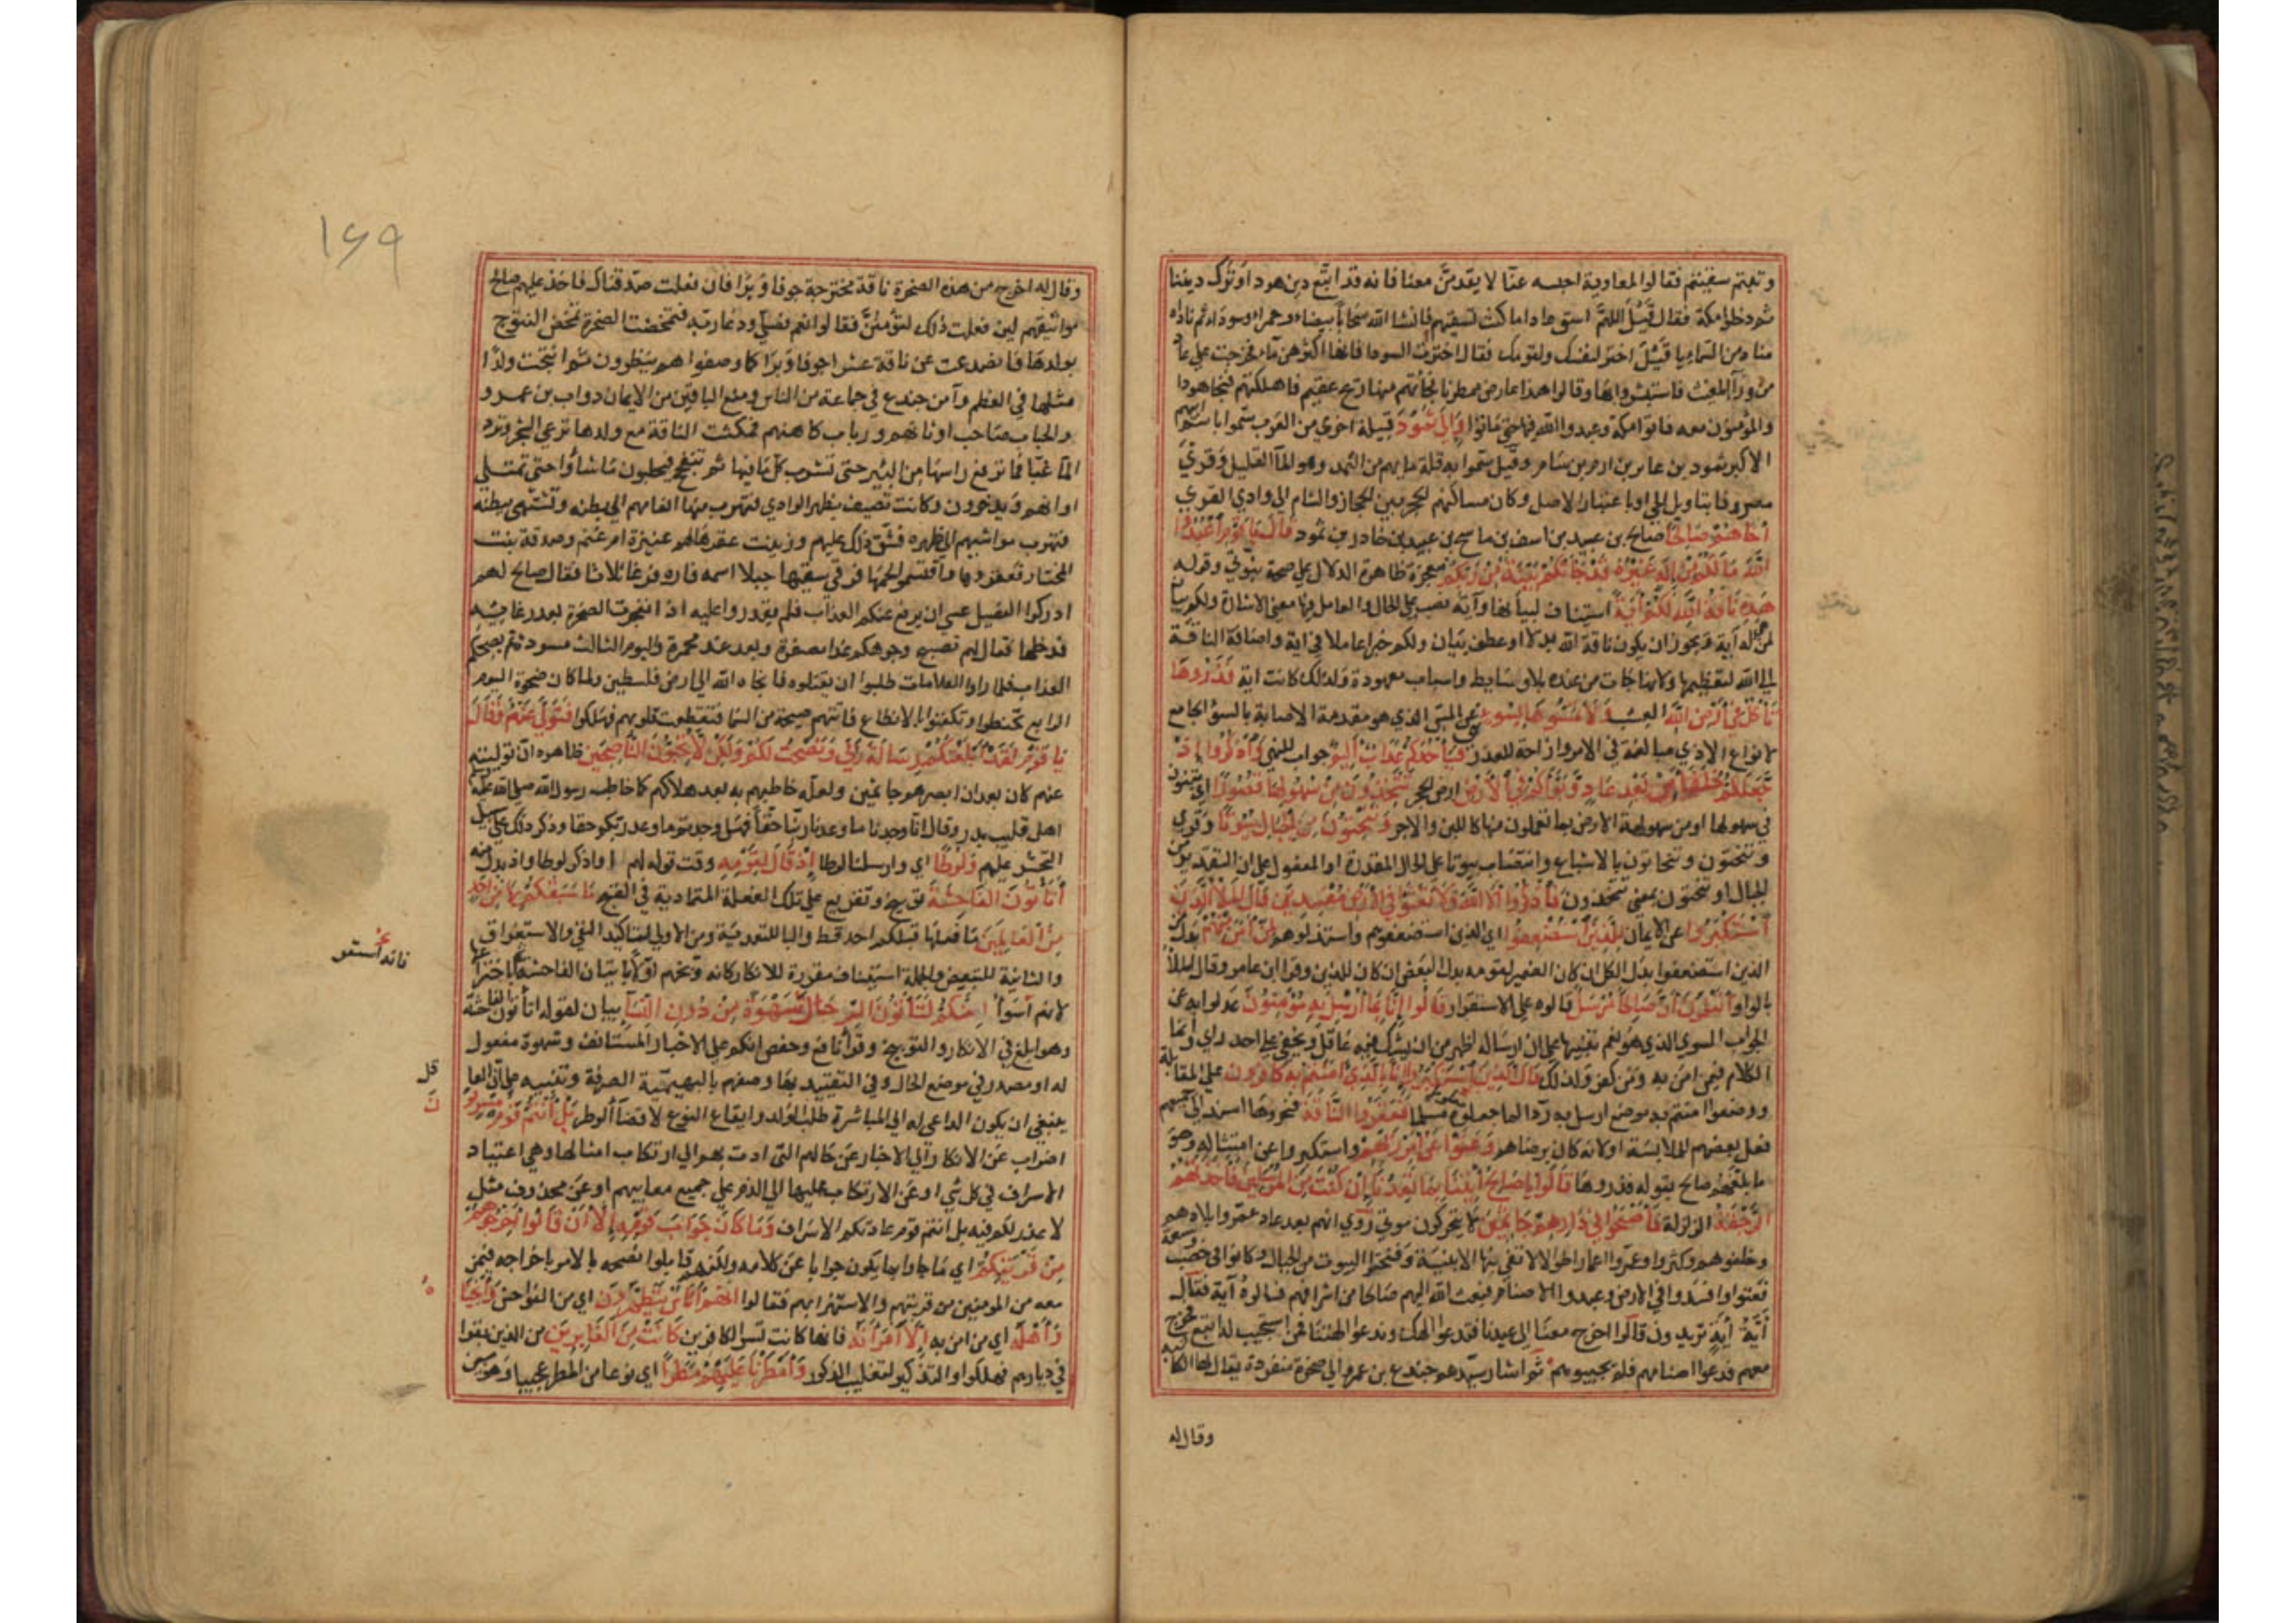 وتبعتم سفيتم فقالوا لمعاوية احبسه عنا لا يقدمن معنا فانه قد اتبع دين هود وترك ديننا
ثم دخلوا مكة فقال قيل اللهم استق عادا ما كنت تسقيهم فانشا الله سحابا بيضاء وحمراء وسوداء ثم ناداه
مناد من السماء يا قيل اختر لنفسك ولقومك فقال اخترت السودا فانها اكثرهن ماء فخرجت على عاد
من وادي المغيث فاستبشروا بها وقالوا هذا عارض ممطرنا فجاءتهم منها ريح عقيم فاهلكتهم فنجا هود
والمؤمنون معه فاتوا مكة وعبدوا الله فيها حتى ماتوا وَاِلَى ثَمُودَ قبيلة اخرى من العرب سموا باسم ابيهم
الاكبر ثمود بن عابر بن ارم بن سام وقيل سموا به لقلة مايهم من الثمد وهو الماء القليل وقرئ
مصروفا بتاويل الحي او باعتبار الاصل وكان مساكنهم الحجر بين الحجاز والشام الى وادي القرى
اَخَاهُمْ صَالِحًا صالح بن عبيد بن اسف بن ماسح بن عبيد بن خادر بن ثمود قَالَ يَا قَوْمِ اعْبُدُوا
اللهَ مَا لَكُمْ مِنْ اِلَهٍ غَيْرُهُ قَدْ جَاءَتْكُمْ بَيِّنَةٌ مِنْ رَبِّكُمْ معجزة ظاهرة الدلال على صحة نبوتي وقوله
هَذِهِ نَاقَةُ اللهِ لَكُمْ اَيَةً استيناف لبيانها وآية نصب على الحال والعامل فيها معنى الاشارة ولكم بيان
لمن هي له آية ويجوز ان يكون ناقة الله بدلا او عطف بيان ولكم خبرا عاملا في اية واضافة الناقة
الى الله لتعظيمها ولانها جات من عنده بلا وسايط واسباب معهودة ولذلك كانت اية فَذَرُوهَا
تَأْكُلْ فِي اَرْضِ اللهِ العشب وَلَا تَمَسُّوهَا بِسُوءٍ نهى عن المس الذي هو مقدمة الاصابة بالسوء الجامع
لانواع الاذى مبالغة في الامر وازاحة للعذر فَيَأْخُذَكُمْ عَذَابٌ اَلِيمٌ جواب للنهي وَاذْكُرُوا اِذْ
جَعَلَكُمْ خُلَفَاءَ مِنْ بَعْدِ عَادٍ وَبَوَّأَكُمْ فِي الْاَرْضِ ارض الحجر تَتَّخِذُونَ مِنْ سُهُولِهَا قُصُورًا اي تبنون
في سهولها او من سهولة الارض بما تعملون منها كاللبن والاجر وَتَنْحِتُونَ مِنَ الْجِبَالِ بُيُوتًا وقرئ
وتنحتون وتنحاتون بالاشباع وانتصاب بيوتا على الحال المقدرة او المفعول على ان التقدير من
الجبال او تنحتون بمعنى تتخذون فَاذْكُرُوا اَلَاءَ اللهِ وَلَا تَعْثَوْا فِي الْاَرْضِ مُفْسِدِينَ قَالَ الْمَلَأُ الَّذِينَ
اسْتَكْبَرُوا عن الايمان لِلَّذِينَ اسْتُضْعِفُوا اي الذين استضعفوهم واستذلوهم لِمَنْ اَمَنَ مِنْهُمْ بدل من
الذين استضعفوا بدل الكل ان كان الضمير لقومه بدل البعض ان كان للذين وقرا ابن عامر وقال الملأ
بالواو أَتَعْلَمُونَ أَنَّ صَالِحًا مُرْسَلٌ قالوه على الاستهزاء قَالُوا اِنَّا بِمَا أُرْسِلَ بِهِ مُؤْمِنُونَ عدلوا به عن
الجواب السوي الذي هو نعم تنبيها على ان ارساله اظهر من ان يشك فيه عاقل ويخفى على احد راى وانما
الكلام فيمن امن به ومن كفر فلذلك قَالَ الَّذِينَ اسْتَكْبَرُوا اِنَّا بِالَّذِي اَمَنْتُمْ بِهِ كَافِرُونَ على المقابلة
ووضعوا امنتم به موضع ارسل به ردا لما جعلوه مسلما فَعَقَرُوا النَّاقَةَ فنحروها اسند الى جميعهم
فعل بعضهم للملابسة او لانه كان برضاهم وَعَتَوْا عَنْ اَمْرِ رَبِّهِمْ واستكبروا عن امتثاله وهو
ما بلغهم صالح بقوله فذروها قَالُوا يَا صَالِحُ ائْتِنَا بِمَا تَعِدُنَا اِنْ كُنْتَ مِنَ الْمُرْسَلِينَ فَأَخَذَتْهُمُ
الرَّجْفَةُ الزلزلة فَأَصْبَحُوا فِي دَارِهِمْ جَاثِمِينَ لا يتحركون موتى روي انهم بعد عاد عمروا بلادهم
وخلفوهم وكثروا وعمروا اعمارا طوالا لا تفي بها الابنية وفنحتوا البيوت من الجبال وكانوا في خصب وسعة
فعتوا وافسدوا في الارض وعبدوا الاصنام فبعث الله اليهم صالحا من اشرافهم فسالوه آية فقال
أيَّة أيةٍ تريدون قالوا اخرج معنا الى عيدنا فتدعو الهك وندعو الهتنا فمن استجيب له اتبع فخرج
معهم فدعوا اصنامهم فلم تجبهم ثم اشار سيدهم جندع بن عمرو الى صخرة منفردة يقال لها الكاثبة
وقال له
١٦٩
وقال له اخرج من هذه الصخرة ناقة مخترجة جوفا وبرا فان فعلت صدقناك فاخذ عليهم صالح
مواثيقهم لين فعلت ذلك لتؤمنن فقالوا نعم فصلى ودعا ربه فتمخضت الصخرة تمخض النتوج
بولدها فانصدعت عن ناقة عشرا جوفا وبرا كما وصفوا هم ينظرون ثم انتجت ولدا
مثلها في العظم وآمن جندع في جماعة من الناس ومنع الباقين من الايمان دواب بن عمرو
والحباب صاحب اوثانهم ورباب كاهنهم فمكثت الناقة مع ولدها ترعى الشجر وترد
الماء غبا فما ترفع راسها من البئر حتى تشرب كل ما فيها ثم تتفحج فيحلبون ما شاؤا حتى تمتلى
اوانيهم ويدخرون وكانت تصيف بظهر الوادي فتهرب منها انعامهم الى بطنه وتشتو ببطنه
فتهرب مواشيهم الى ظهره فشق ذلك عليهم وزينت عقرها لهم عنيزة ام غنم وصدقة بنت
المختار فعقروها واقتسموا لحمها فرقى سقبها جبلا اسمه قاره فرغا ثلاثا فقال صالح لهم
ادركوا الفصيل عسى ان يرفع عنكم العذاب فلم يقدروا عليه اذ انفجرت الصخرة بعد رغايه
فدخلها فقال لهم تصبح وجوهكم غدا مصفرة وبعد غد محمرة واليوم الثالث مسودة ثم يصبحكم
العذاب فلما راوا العلامات طلبوا ان يقتلوه فانجاه الله الى ارض فلسطين ولما كان ضحوة اليوم
الرابع تحنطوا وتكفنوا بالانطاع فاتتهم صيحة من السما فتقطعت قلوبهم فهلكوا فَتَوَلَّى عَنْهُمْ وَقَالَ
يَا قَوْمِ لَقَدْ أَبْلَغْتُكُمْ رِسَالَةَ رَبِّي وَنَصَحْتُ لَكُمْ وَلَكِنْ لَا تُحِبُّونَ النَّاصِحِينَ ظاهره ان توليه
عنهم كان بعد ان ابصرهم جاثمين ولعله خاطبهم به بعد هلاكهم كما خاطب رسول الله صلى الله عليه وسلم
اهل قليب بدر وقال انا وجدنا ما وعدنا ربنا حقا فهل وجدتم ما وعد ربكم حقا وذكر ذلك على سبيل
التحسر عليهم وَلُوطًا اي وارسلنا لوطا اِذْ قَالَ لِقَوْمِهِ وقت قوله لهم او اذكر لوطا واذ بدل منه
أَتَأْتُونَ الْفَاحِشَةَ توبيخ وتقريع على تلك الفعلة المتمادية في القبح مَا سَبَقَكُمْ بِهَا مِنْ اَحَدٍ
مِنَ الْعَالَمِينَ ما فعلها قبلكم احد قط والبا للتعدية ومن الاولى لتاكيد النفي والاستغراق
والثانية للتبعيض والجملة استيناف مقررة للانكار كانه وبخهم اولا باتيان الفاحشة ثم باختراعها
فانه استؤ
لانهم أسوأ اِنَّكُمْ لَتَأْتُونَ الرِّجَالَ شَهْوَةً مِنْ دُونِ النِّسَاءِ بيان لقوله اتاتون الفاحشة
وهو ابلغ في الانكار والتوبيخ وقرأ نافع وحفص انكم على الاخبار المستانف وشهوة مفعول
له او مصدر في موضع الحال وفي التقييد بها وصفهم بالبهيمية الصرفة وتنبيه على ان العاقل
ينبغي ان يكون الداعي له الى المباشرة طلب الولد وايقاع النوع لا قضا الوطر بَلْ أَنْتُمْ قَوْمٌ مُسْرِفُونَ
اضراب عن الانكار الى الاخبار عن حالهم التي ادت بهم الى ارتكاب امثالها وهي اعتياد
الاسراف في كل شي او عن الارتكاب عليها الى الذم على جميع معايبهم او عن محذوف مثل
لا عذر لكم فيه بل انتم قوم عادتكم الاسراف وَمَا كَانَ جَوَابَ قَوْمِهِ اِلَّا أَنْ قَالُوا أَخْرِجُوهُمْ
مِنْ قَرْيَتِكُمْ اي ما جاوا بما يكون جوابا عن كلامه ولكنهم قابلوا نصحه بالامر باخراجه فيمن
معه من المومنين من قريتهم والاستهزا بهم فقالوا اِنَّهُمْ أُنَاسٌ يَتَطَهَّرُونَ اي من الفواحش فَأَنْجَيْنَاهُ
وَأَهْلَهُ اي من امن به اِلَّا امْرَأَتَهُ فانها كانت تسر الكفر كَانَتْ مِنَ الْغَابِرِينَ من الذين بقوا
في ديارهم فهلكوا والتذكير لتغليب الذكور وَأَمْطَرْنَا عَلَيْهِمْ مَطَرًا اي نوعا من المطر عجيبا وهو مبين